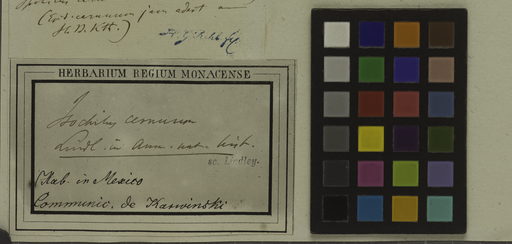 (Isoch. cernuum jam adest a
HERBARIUM REGIUM MONACENSE
Isochilus cernuum
Lindl. in Ann. nat. hist.
sc. Lindley.
Hab. in Mexico
Communic. de Karwinski